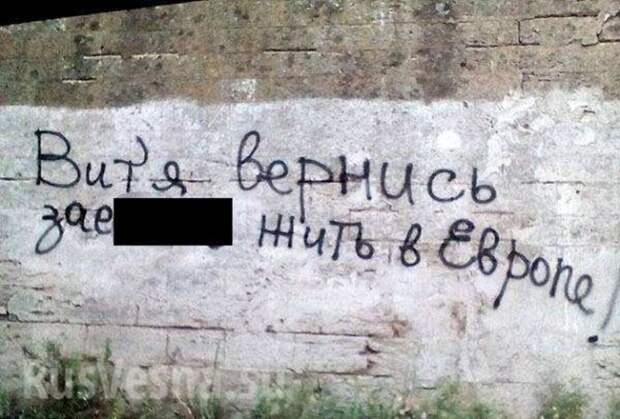 Вит'я вернись
зае жить в Европе!
rusvesna.su